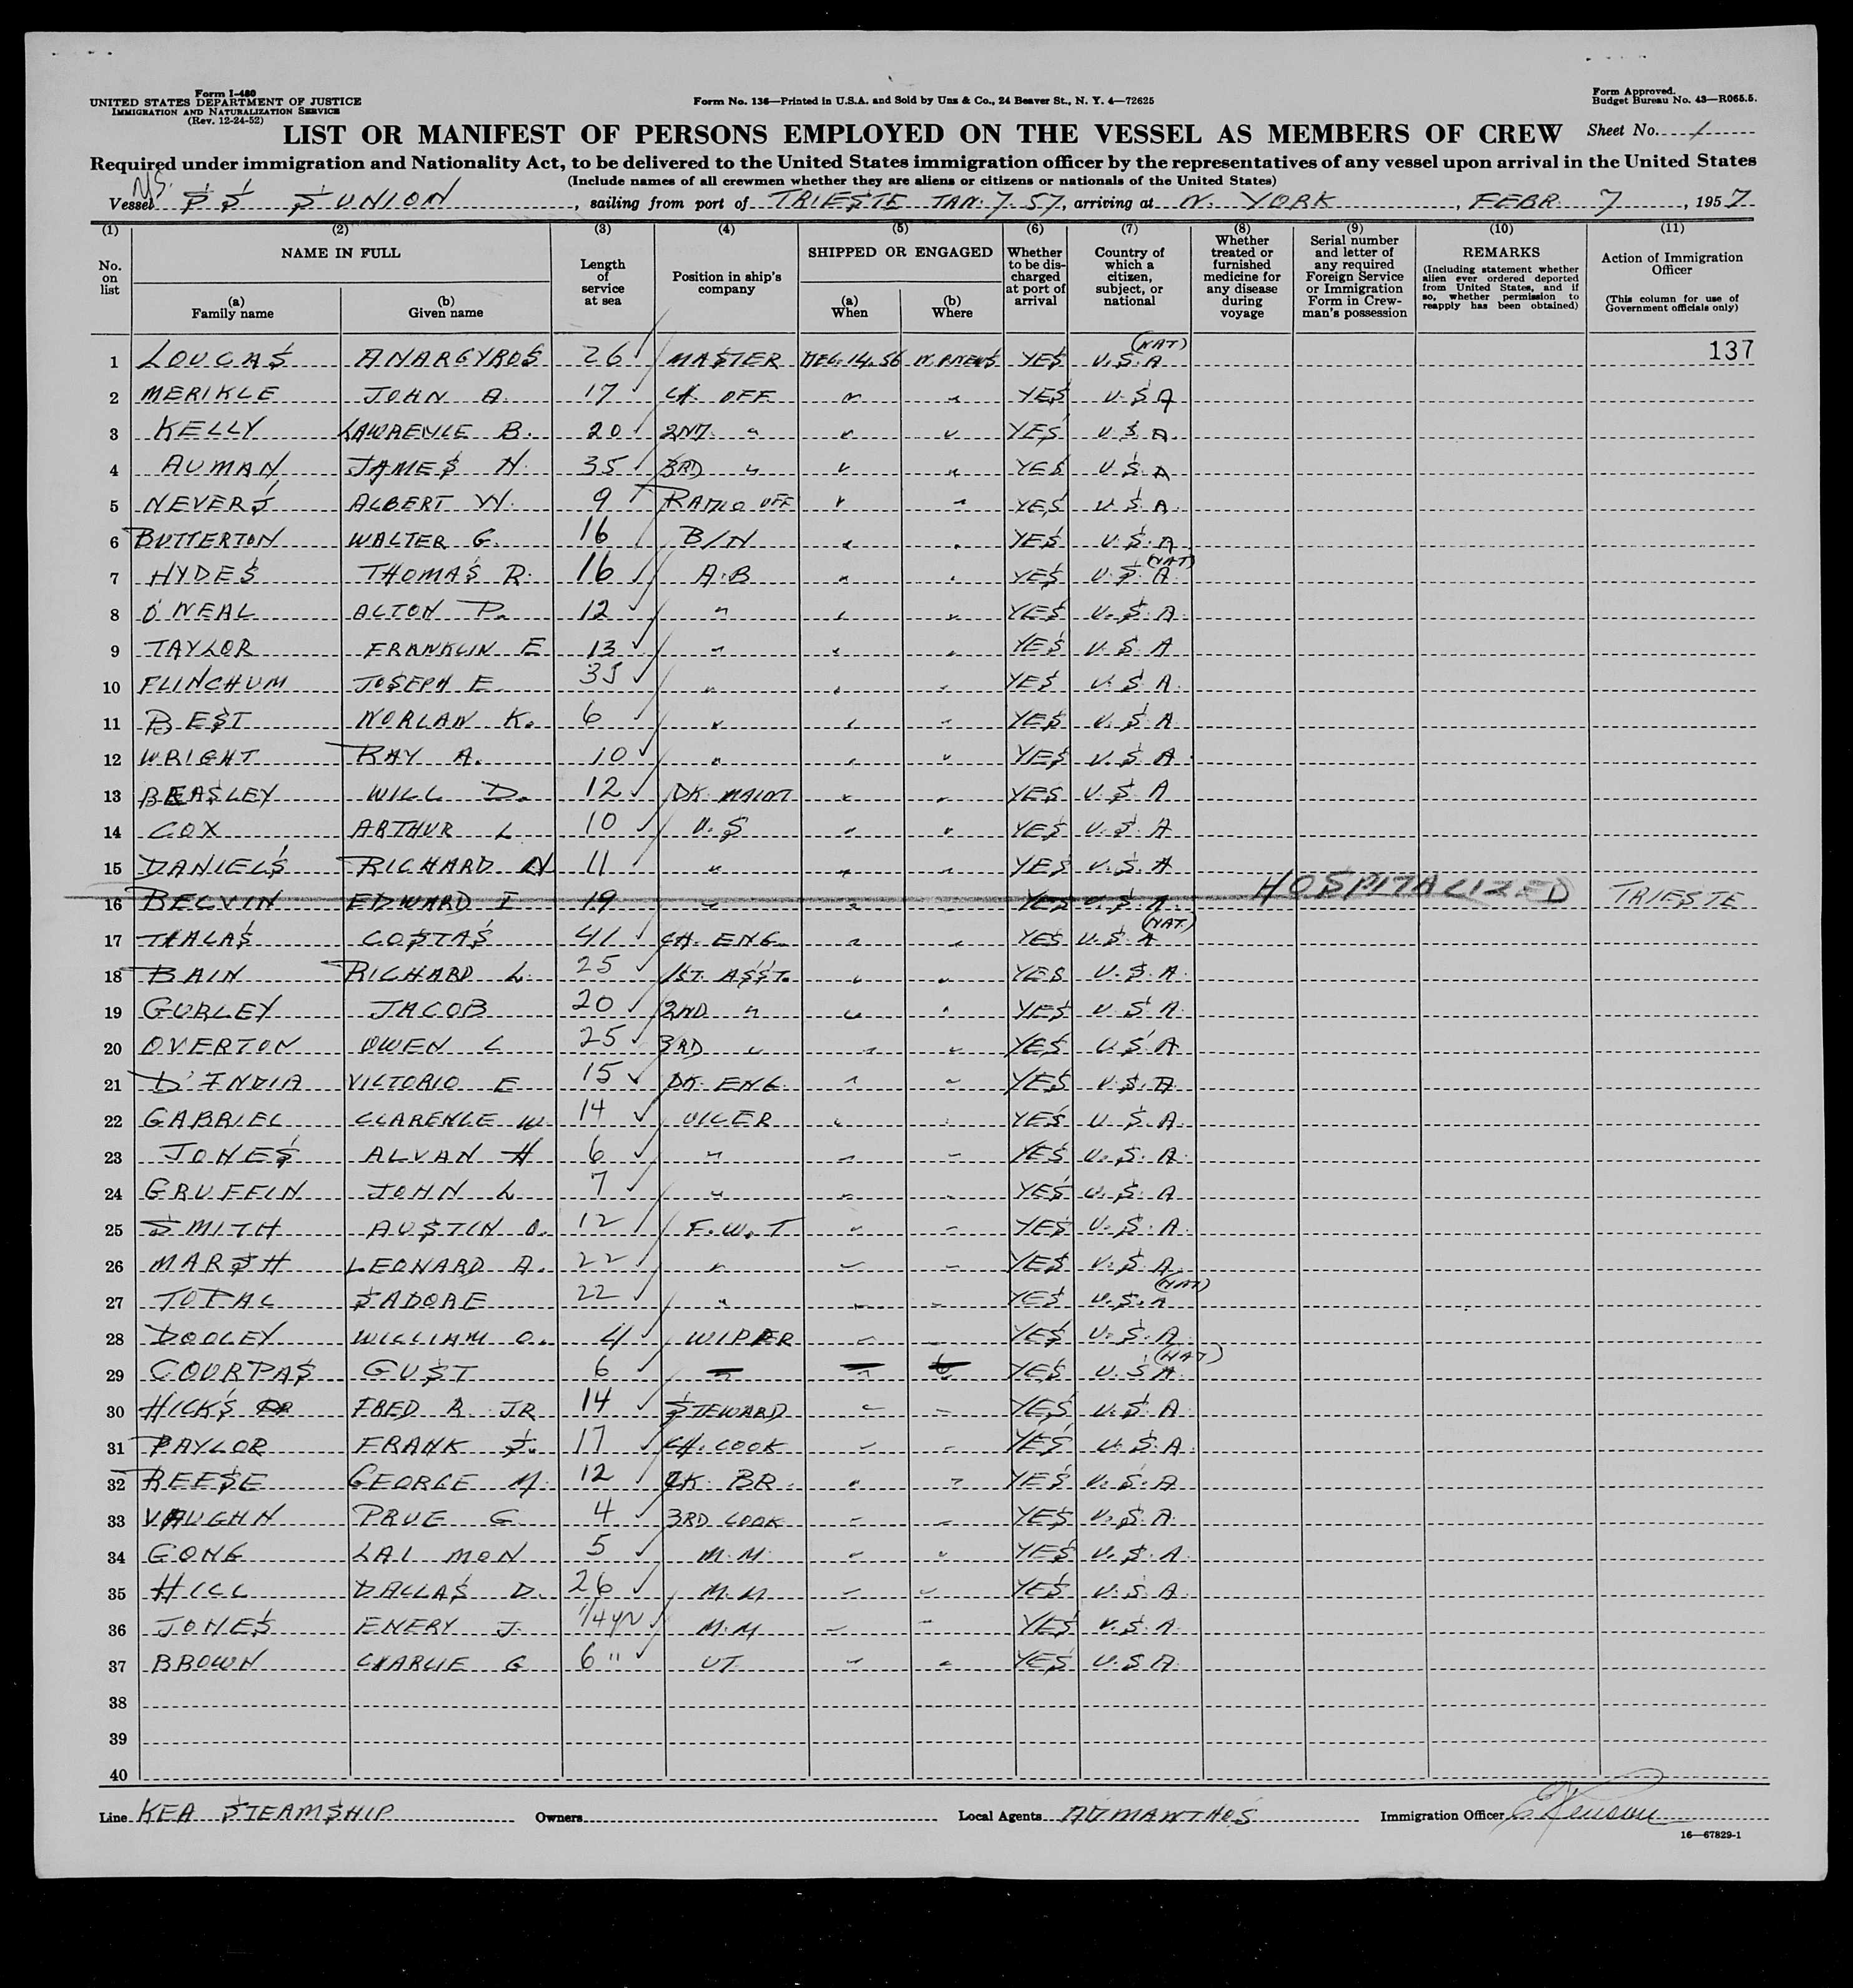 Form I-480
UNITED STATES DEPARTMENT OF JUSTICE
IMMIGRATION AND NATURALIZATION SERVICE
(Rev. 12-24-52)
Form No. 136—Printed in U.S.A. and Sold by Unz & Co., 24 Beaver St., N. Y. 4—72625
Form Approved.
Budget Bureau No. 43—R065.5.
LIST OR MANIFEST OF PERSONS EMPLOYED ON THE VESSEL AS MEMBERS OF CREW Sheet No. 1
Required under immigration and Nationality Act, to be delivered to the United States immigration officer by the representatives of any vessel upon arrival in the United States
(Include names of all crewmen whether they are aliens or citizens or nationals of the United States)
Vessel SS SUNION, sailing from port of TRIESTE JAN. 7. 57, arriving at N. YORK, FEBR. 7, 1957
(1) No. on list
(2) NAME IN FULL (a) Family name (b) Given name
(3) Length of service at sea
(4) Position in ship's company
(5) SHIPPED OR ENGAGED (a) When (b) Where
(6) Whether to be discharged at port of arrival
(7) Country of which a citizen, subject, or national
(8) Whether treated or furnished medicine for any disease during voyage
(9) Serial number and letter of any required Foreign Service or Immigration Form in Crewman's possession
(10) REMARKS (Including statement whether alien ever ordered deported from United States, and if so, whether permission to reapply has been obtained)
(11) Action of Immigration Officer (This column for use of Government officials only)
1 LOUCAS ANARGYROS 26 MASTER DEC. 14. 56 N. PNEWS YES U.S.A (NAT) 137
2 MERIKLE JOHN A. 17 CH. OFF " " YES U.S.A
3 KELLY LAWRENCE B. 20 2ND. " " " YES U.S.A.
4 AUMAN JAMES H. 35 3RD " " " YES U.S.A
5 NEVERS ALBERT W. 9 RADIO OFF " " YES U.S.A.
6 BUTTERTON WALTER G. 16 B/N " " YES U.S.A
7 HYDES THOMAS R. 16 A.B " " YES U.S.A. (NAT)
8 O'NEAL ALTON P. 12 " " " YES U.S.A.
9 TAYLOR FRANKLIN E 13 " " " YES U.S.A
10 FLINCHUM JOSEPH E. 35 " " " YES U.S.A.
11 BEST NORLAN K. 6 " " " YES U.S.A
12 WRIGHT RAY A. 10 " " " YES U.S.A.
13 BEASLEY WILL D. 12 DK. MAINT " " YES U.S.A
14 COX ARTHUR L 10 O.S " " YES U.S.A
15 DANIELS RICHARD N 11 " " " YES U.S.A
16 BELVIN EDWARD I 19 " " " YES U.S.A. HOSPITALIZED TRIESTE
17 THALAS COSTAS 41 CH. ENG. " " YES U.S.A (NAT)
18 BAIN RICHARD L. 25 1ST. ASST. " " YES U.S.A.
19 GURLEY JACOB 20 2ND " " " YES U.S.A.
20 OVERTON OWEN L 25 3RD " " " YES U.S.A
21 D'INDIA VICTORIO E 15 DK. ENG. " " YES U.S.A.
22 GABRIEL CLARENCE W. 14 OILER " " YES U.S.A.
23 JONES ALVAN H 6 " " " YES U.S.A.
24 GRUFFIN JOHN L 7 " " " YES U.S.A
25 SMITH AUSTIN O. 12 F.W.T " " YES U.S.A.
26 MARSH LEONARD A. 22 " " " YES U.S.A
27 TOPAL SADORE 22 " " " YES U.S.A (NAT)
28 DOOLEY WILLIAM O. 4 WIPER " " YES U.S.A.
29 COURPAS GUST 6 " " " YES U.S.A. (NAT)
30 HICKS FRED R. JR 14 STEWARD " " YES U.S.A
31 PAYLOR FRANK J. 17 CH. COOK " " YES U.S.A.
32 REESE GEORGE M. 12 CK. BR. " " YES U.S.A
33 VAUGHN PRUE G 4 3RD COOK " " YES U.S.A.
34 GONG LAI MON 5 M.M. " " YES U.S.A.
35 HILL DALLAS D. 26 M.M " " YES U.S.A.
36 JONES ENERY J. 1/4 yr M.M " " YES U.S.A.
37 BROWN CHARLIE G 6 " UT. " " YES U.S.A.
38
39
40
Line KEA STEAMSHIP Owners Local Agents ADMANTHOS Immigration Officer
16—67829-1